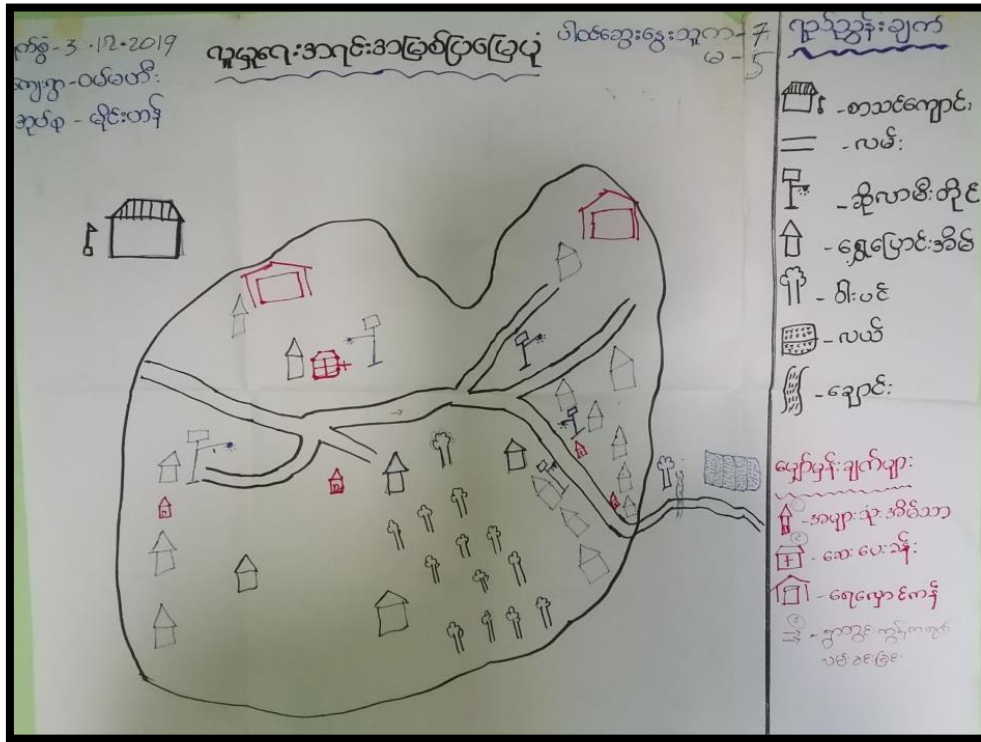 ရက်စွဲ-3.12.2019
ကျေးရွာ-ဝမ်မဟီး
အုပ်စု - မိုင်းဟန်
လူမှုရေးအရင်းအမြစ်ပြမြေပုံ
ပါဝင်ဆွေးနွေးသူ က-7
မ-5
ရည်ညွှန်းချက်
-စာသင်ကျောင်း
-လမ်း
-ဆိုလာမီးတိုင်
-ရွှေ့ပြောင်းအိမ်
-ဝါးပင်
-လယ်
-ချောင်း
မျှော်မှန်းချက်များ
-အများသုံးအိမ်သာ
-ဆေးပေးခန်း
-ရေလှောင်ကန်
-ရွာတွင်းကွန်ကရစ်
လမ်းခင်းခြင်း